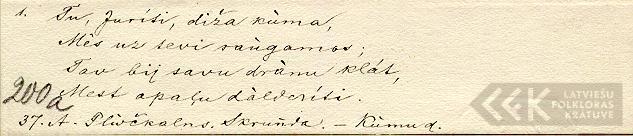 1. Tu, Jurīti, diža kùma,
Mēs uz tevi raùgamos;
Tav bij savu drànu klāt,
200a Mest apaļu dàlderīti.
37. A. Plòčkalns. Skruñda. – Kùmu d.
LATVIEŠU
FOLKLORAS
KRĀTUVE